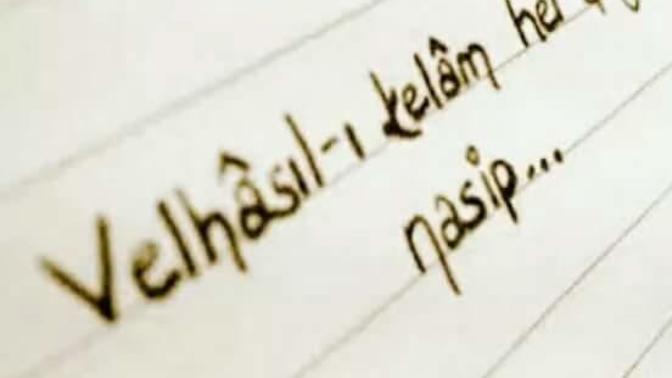 Velhâsıl-ı kelâm her
nasip...